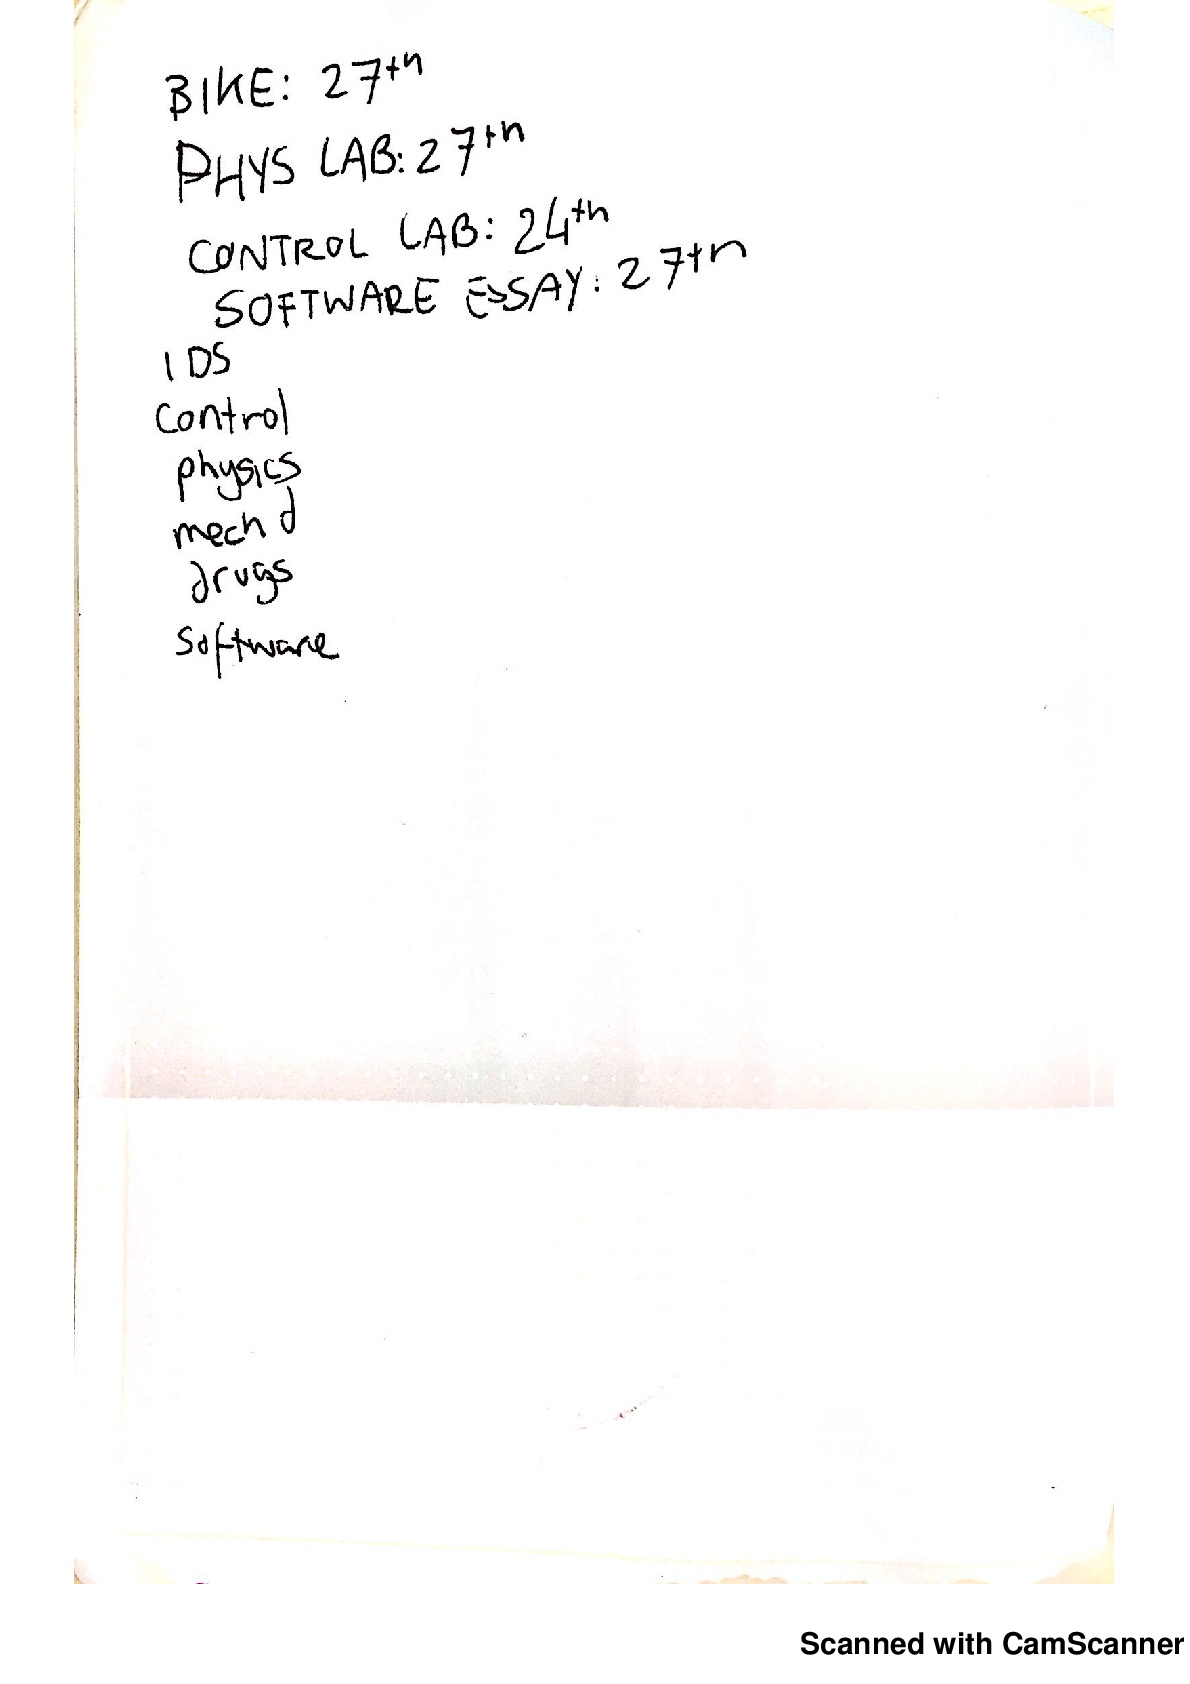 BIKE: 27th
PHYS LAB: 27th
CONTROL LAB: 24th
SOFTWARE ESSAY: 27th
IDS
control
physics
mech d
drugs
software
Scanned with CamScanner